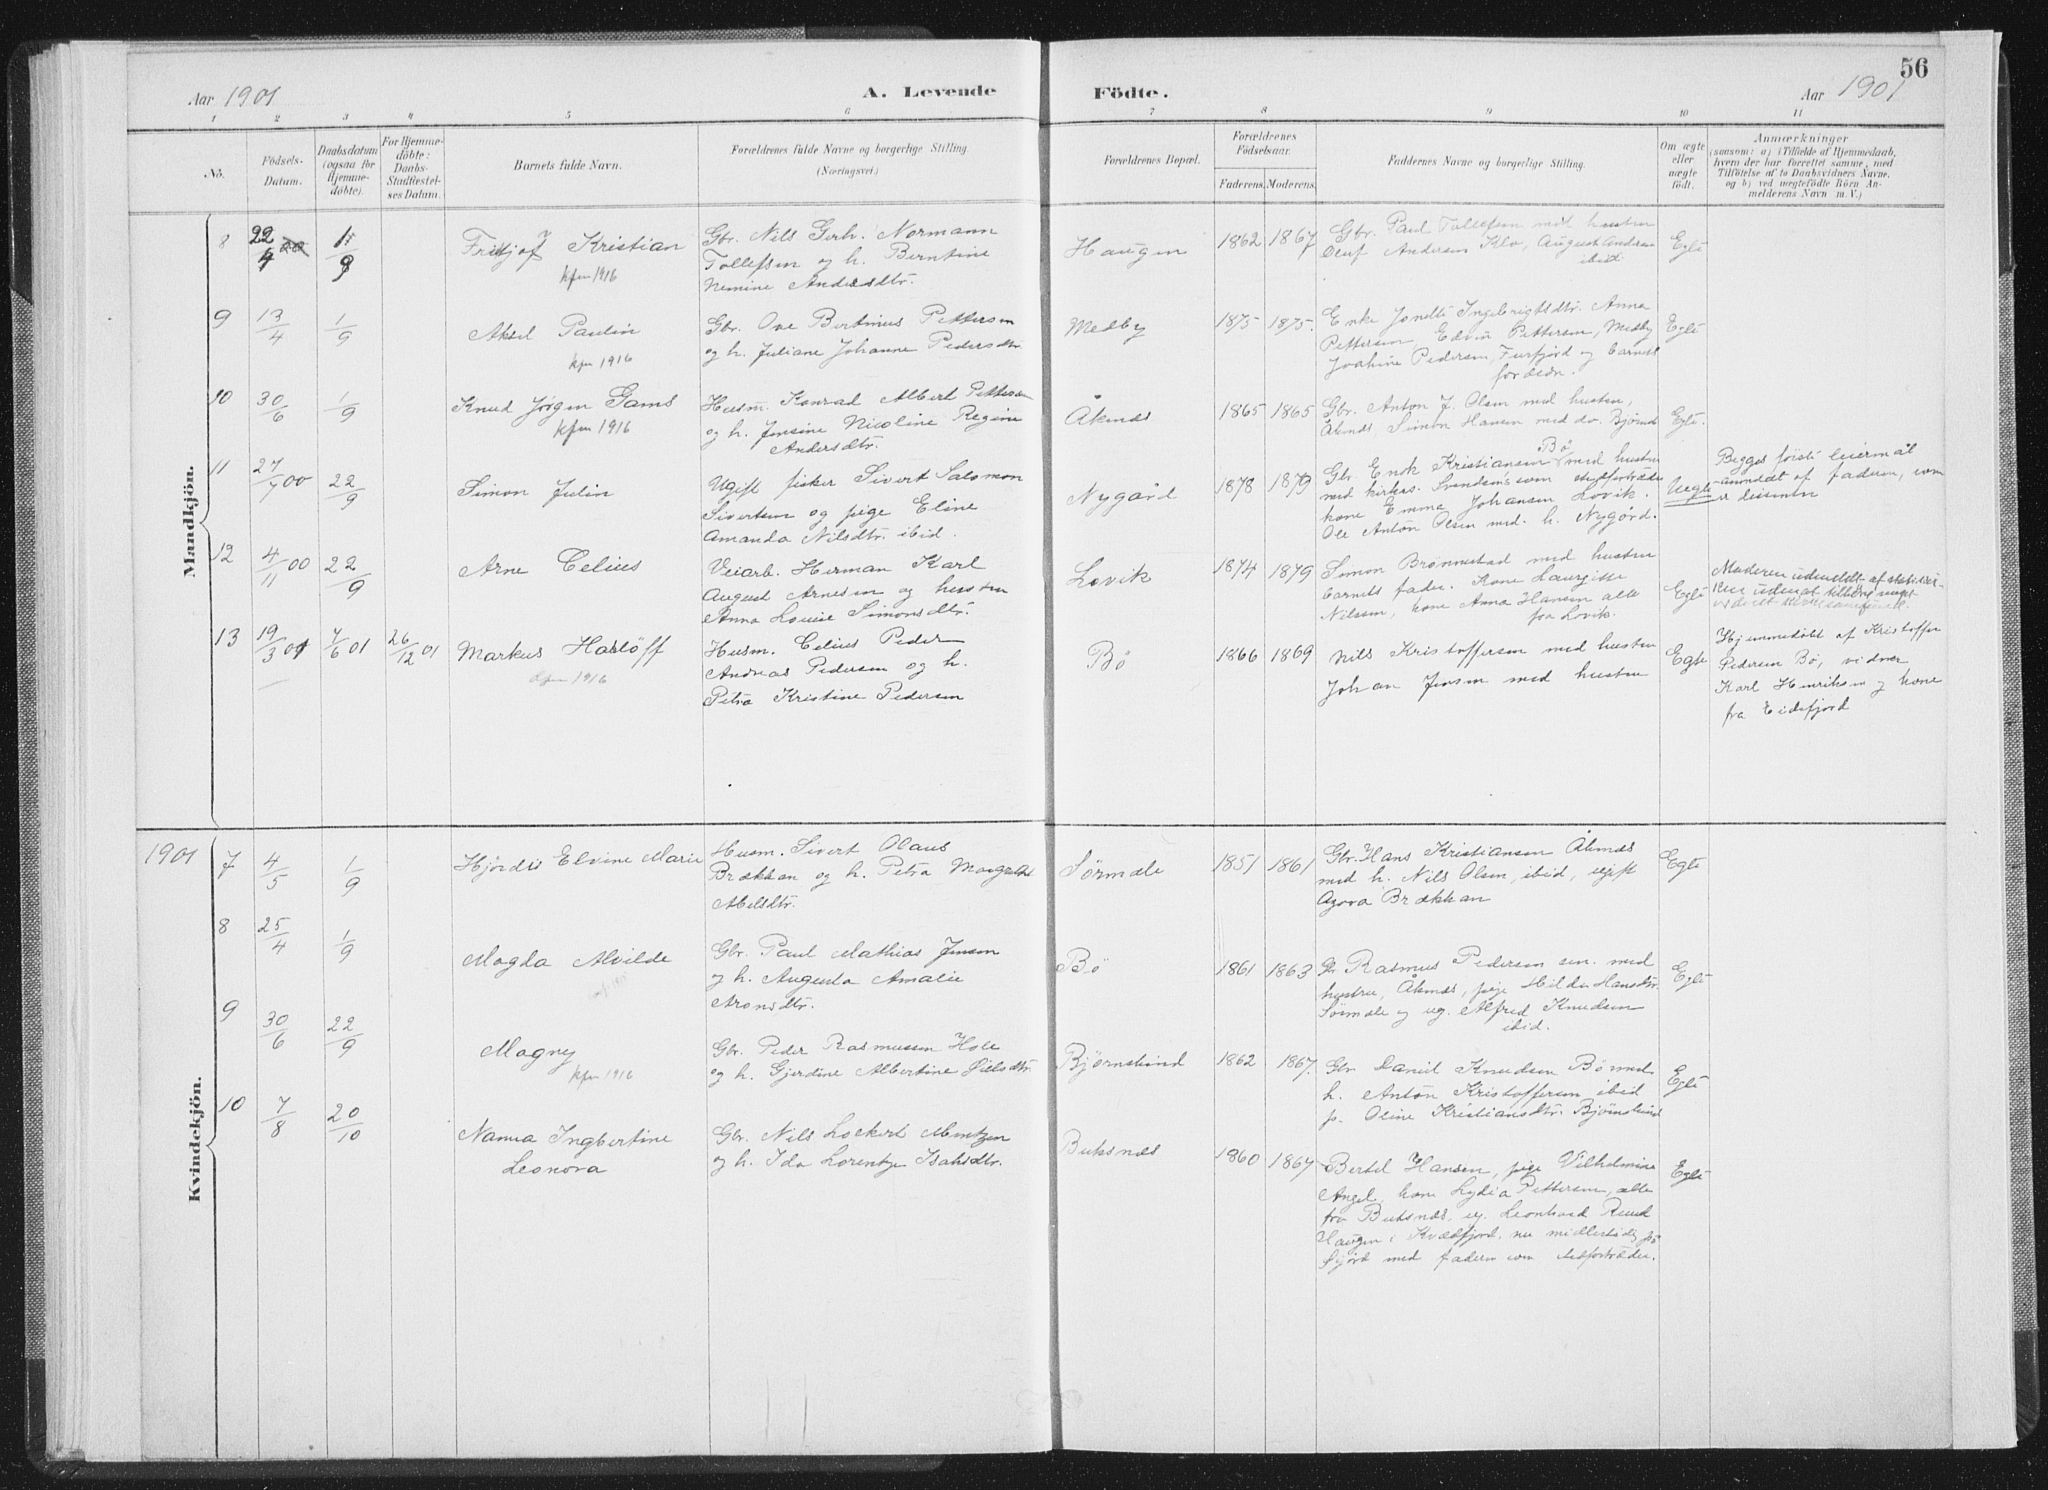 56
Aar 1901
A. Levende Födte.
Aar 1901
1 2 3 4 5 6 7 8 9 10 11
No.
Födsels-
Datum.
Daabsdatum
(ogsaa for
Hjemme-
döbte).
For Hjemme-
döbte:
Daabs-
Stadfæstel-
ses Datum.
Barnets fulde Navn.
Forældrenes fulde Navne og borgerlige Stilling.
(Næringsvei.)
Forældrenes Bopæl.
Forældrenes
Födselsaar.
Faderens. Moderens.
Faddernes Navne og borgerlige Stilling.
Om ægte
eller
uægte
födt.
Anmærkninger
(saasom: a) i Tilfælde af Hjemmedaab,
hvem der har forrettet samme, med
Tilföielse af to Daabsvidners Navne,
og b) ved uægtefödte Börn An-
melderens Navn m. V.)
Mandkjön.
8 22/4 1/9 Fritjof Kristian
kfm 1916
Gbr. Nils Gerh. Normann
Tollefsen og h. Berntine
Nemine Andersdtr.
Haugen 1862 1867
Gbr. Paul Tollefsen med hustru
Oluf Andersen Klo, August Andersen
ibid
Egte
9 13/4 1/9 Aksel Paulin
kfm 1916
Gbr. Ove Bertinius Pettersen
og h. Juliane Johanne Pedersdtr.
Medby 1875 1875.
Enke Jonette Ingebrigtsdtr. Anna
Pettersen Edvin Pettersen, Medby
Joakine Pedersen, Furfjord og barnets
forældr.
Egte
10 30/6 1/9 Knud Jörgen Gams
kfm 1916
Husm. Konrad Albert Pettersen
og h. Jensine Nicoline Regine
Andersdtr.
Åknæs 1865 1865
Gbr. Anton J. Olsen med hustru,
Åknæs, Simon Hansen med do. Björnsk
Egte.
11 27/7 00 22/9 Simon Julin
Ugift fisker Sivert Salomon
Sivertsen og pige Eline
Amanda Nilsdtr. ibid.
Nygård 1878 1879
Gbr. Enok Kristiansen Bö med hustru
med kirkes. Svendsen som stedfortræder
kone Emma Johansen Lovik.
Ole Anton Olsen med h. Nygård.
Uegte
Begges förste leiermål
anmeldt af faderen, som
er dissenter
12 4/11 00 22/9 Arne Celius
Veiarb. Herman Karl
August Arnesen og hustru
Anna Louise Simonsdtr.
Lovik 1874 1879
Simon Brønnestad med hustru
barnets fader. Kone Laurgitte
Nilssen, kone Anna Hansen alle
fra Lovik.
Egte
Moderen udmeldt af stats-
kirken uden at tilhöre noget
13 19/3 01 4/6 01 26/12 01 Markus Harlöff
kfm 1916
Husm. Celius Peder
Andreas Pedersen og h.
Petra Kristine Pedersen
Bö 1866 1869
Nils Kristoffersen med hustru
Johan Jensen med hustru
Egte
Hjemmedöbt af Kristoffer
Pedersen Bö, vidner
Karl Henriksen og kone
fra Eidsfjord
Kvindekjön.
1901
7 4/5 1/9 Hjördis Elvine Marie
Husm. Sivert Olaus
Brækkan og h. Petra Margrethe
Abelsdtr.
Sörmæle 1851 1861
Gbr. Hans Kristiansen Åknæs
med h. Nils Olsen, ibid, ugift
Agora Brækkan
Egte
8 25/4 1/9 Magda Alvilde
Gbr. Paul Mathias Jensen
og h. Augusta Amalie
Aronsdtr.
Bö 1861 1863
Rasmus Pedersen sen. med
hustru, Åknæs, pige Hilda Hansdtr.
Sörmæle og ug. Alfred Knudsen
ibid.
Egte
9 30/6 22/9 Magny
kfm 1916
Gbr. Peder Rasmussen Hole
og h. Gjerdine Albertine Silsdtr.
Björnskind 1862 1867.
Gbr Daniel Knudsen Bö med
h. Anton Kristoffersen ibid
p. Oline Kristiansdtr. Björnskind
Egte
10 7/8 20/10 Nanna Ingbertine
Leonora
Gbr. Nils Lockert Mentzen
og h. Ida Lorentze Isaksdtr.
Buksnæs 1860 1867
Bertel Hansen, pige Vilhelmine
Angel, kone Lydia Pettersen, alle
fra Buksnæs, ug. Leonhard Ruud
Haugen i Kvædfjord, nu midlertidig på
med faderen som stedfortræder.
Egte